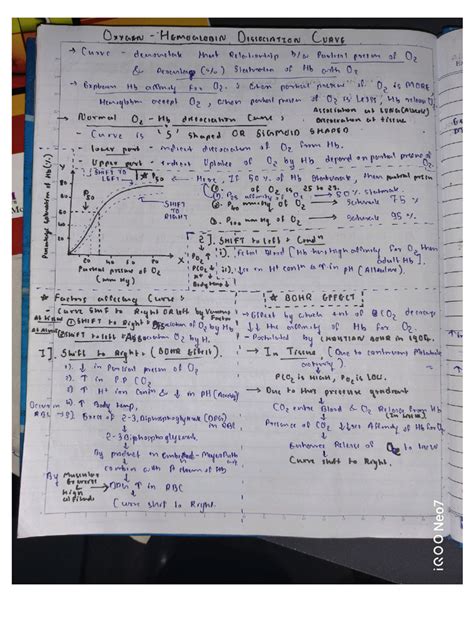 OXYGEN - HEMOGLOBIN DISSOCIATION CURVE
→ Curve - demonstrate that Relationship b/w Partial pressure of O2
& Percentage (%) Saturation of Hb with O2
→ Explain Hb affinity for O2 : when partial pressure of O2 is MORE
Hemoglobin accept O2, when partial pressure of O2 is Less, Hb release O2
→ Normal O2 - Hb dissociation Curve :
Association at LUNGS
dissociation at tissue
- Curve is 'S' shaped OR SIGMOID SHAPED
- lower part - indicate dissociation of O2 from Hb.
- Upper part - indicate Uptake of O2 by Hb, depend on partial pressure of O2
SHIFT TO LEFT
P50
P50
SHIFT TO RIGHT
Percentage Saturation of Hb (%)
80
60
40
20
20 40 60 80
Partial pressure of O2
(mm Hg)
Here, If 50% of Hb then partial pressure
of O2 is 25 to 27.
50% Saturate.
② P40 mmHg of O2 Saturate 75%
③ P100 mmHg of O2 Saturate 95%
2]. SHIFT to left : Condn
1). Fetal Blood (Hb has high affinity for O2 than
adult Hb].
ii). ↓se in H+ & ↑ in pH (Alkaline).
PO2 ↑
PCO2 ↓
H+ ↓
Body temp ↓
* Factors affecting Curve :
- Curve Shift to Right OR left by Various Factor
① SHIFT to Right : of O2 by Hb
② SHIFT to left : O2 by H.
I]. Shift to Right : (BOHR Effect).
1). ↓ in Partial pressure of O2
2). ↑ in P.P CO2
3). ↑ H+ ion & ↓ in pH (Acidity)
4). ↑ Body temp,
5). Excess of 2-3, Diphosphoglycerate (DPG) in RBC
↓
2-3 Diphosphoglycerate
↓
By product in
↓
combine with
↓
DPG ↑ in RBC
↓
Curve Shift to Right.
By Muscular Exercise
High altitude
* BOHR EFFECT
→ Effect by which of CO2 decrease
the affinity of Hb for O2.
- Postulated by CHRISTIAN BOHR in 1904.
→ In Tissue (Due to continuous Metabolic activity).
↓
PCO2 is HIGH, PO2 is LOW.
→ Due to that pressure gradient
↓
CO2 enter Blood & O2 Release from Hb
↓
Presence of CO2 ↓ses Affinity of Hb for O2
↓
Enhance Release of O2 to
↓
Curve Shift to Right.
iQOO Neo7